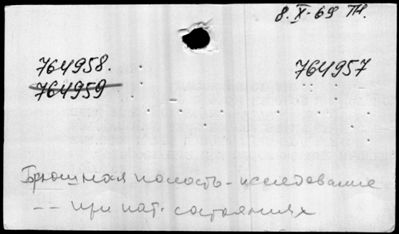 8.X-69 ТН.
764958. 764957
764959
Брюшная полость - исследование
-- при пат. состояниях